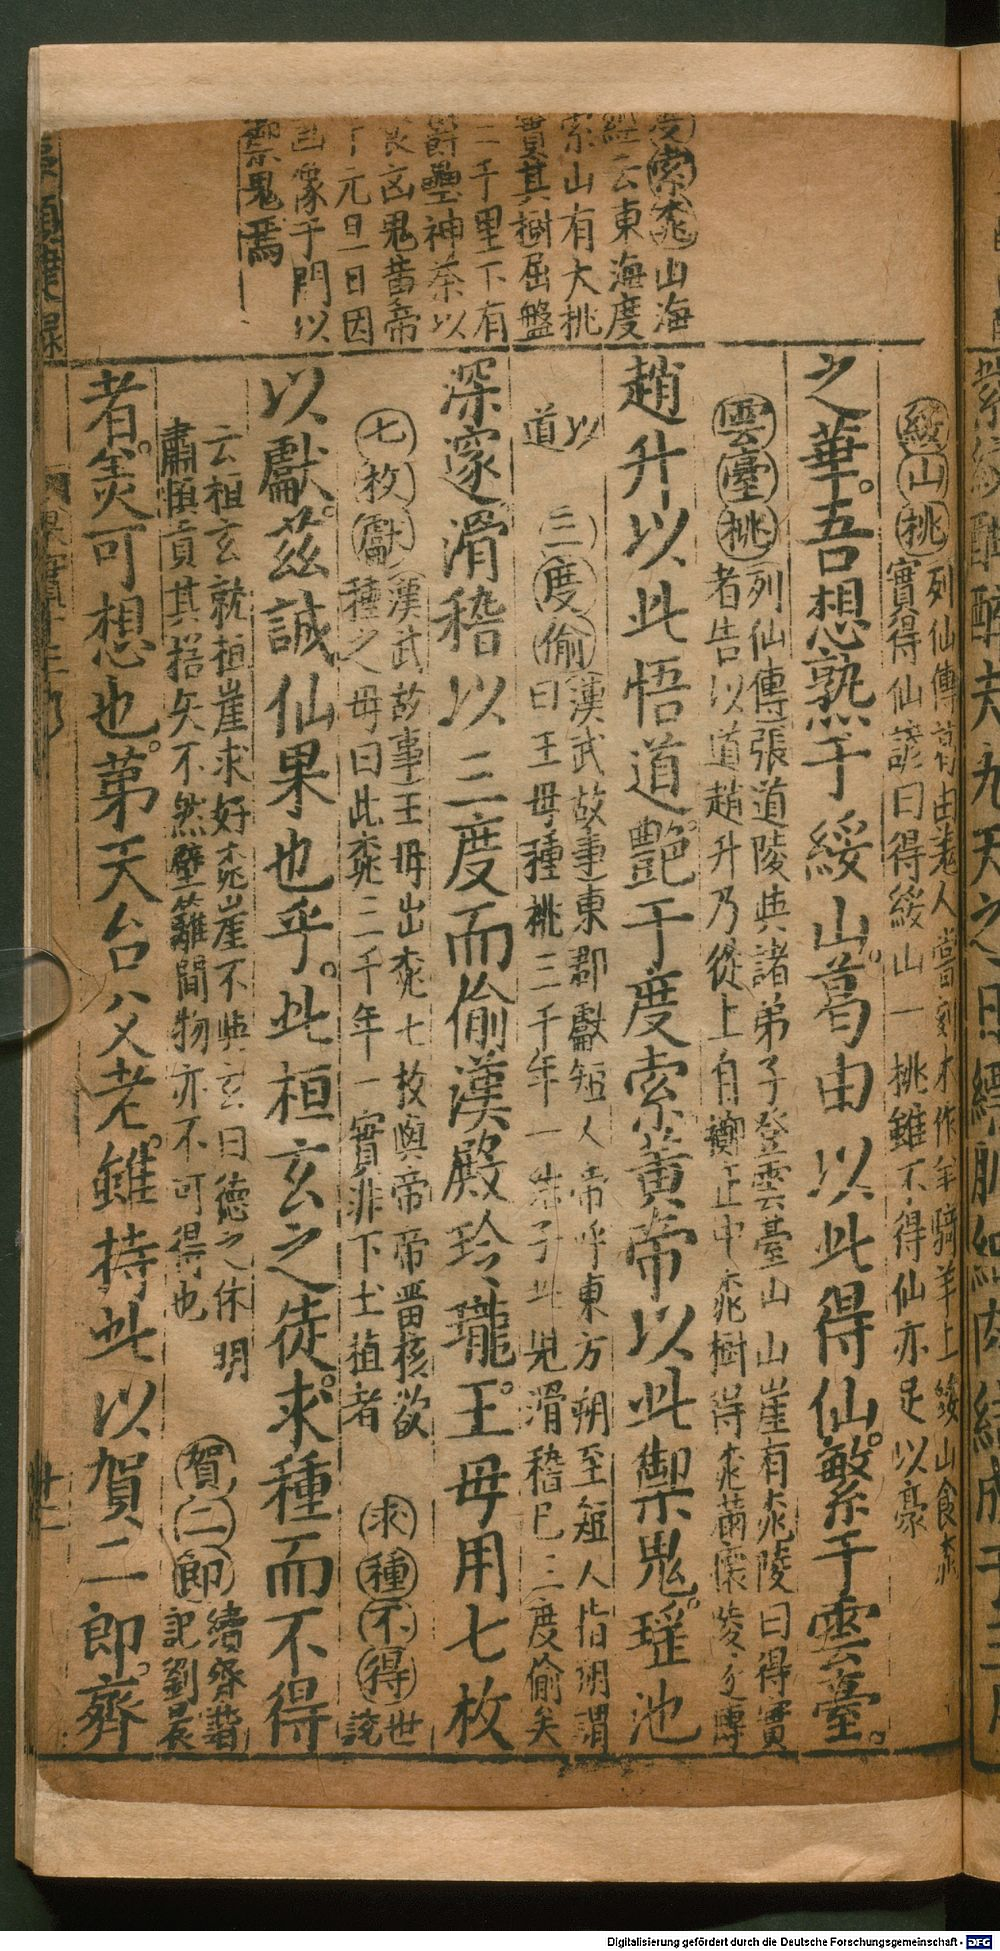 綏山桃
列仙傳葛由羗人嘗刻木作羊騎羊上綏山食桃
實得仙諺曰得綏山一桃雖不得仙亦足以豪
之華。吾想熟于綏山。葛由以此得仙。繁于雲臺。
雲臺桃
列仙傳張道陵與諸弟子登雲臺山山崖有桃陵曰得實
者告以道趙升乃從上自擲正中桃樹得桃滿懷陵乃傳
趙升以此悟道。艷于度索。黄帝以此禦鬼。瑤池
以
道
三度偷
漢武故事東郡獻短人帝呼東方朔至短人指朔謂
曰王母種桃三千年一結子此兒滑稽已三度偷矣
深邃。滑稽以三度而偷漢殿玲瓏。王母用七枚
七枚獻
漢武故事王母出桃七枚與帝帝畱核欲
種之母曰此桃三千年一實非下土植者
求種不得
世
說
以獻。茲誠仙果也乎。此桓玄之徒。求種而不得
云祖玄就祖崖求好桃崖不與玄曰德之休明
肅慎貢其楛矢不然壁籬間物亦不可得也
賀二郎
續齊諧
記劉晨
者。羨可想也。第天台父老。雖持此以賀二郎。齊
度索桃山海
經云東海度
索山有大桃
實其樹屈盤
三千里下有
鬱壘神荼以
食凶鬼黄帝
元旦日因
畫像于門以
禦鬼焉
Digitalisierung gefördert durch die Deutsche Forschungsgemeinschaft - DFG